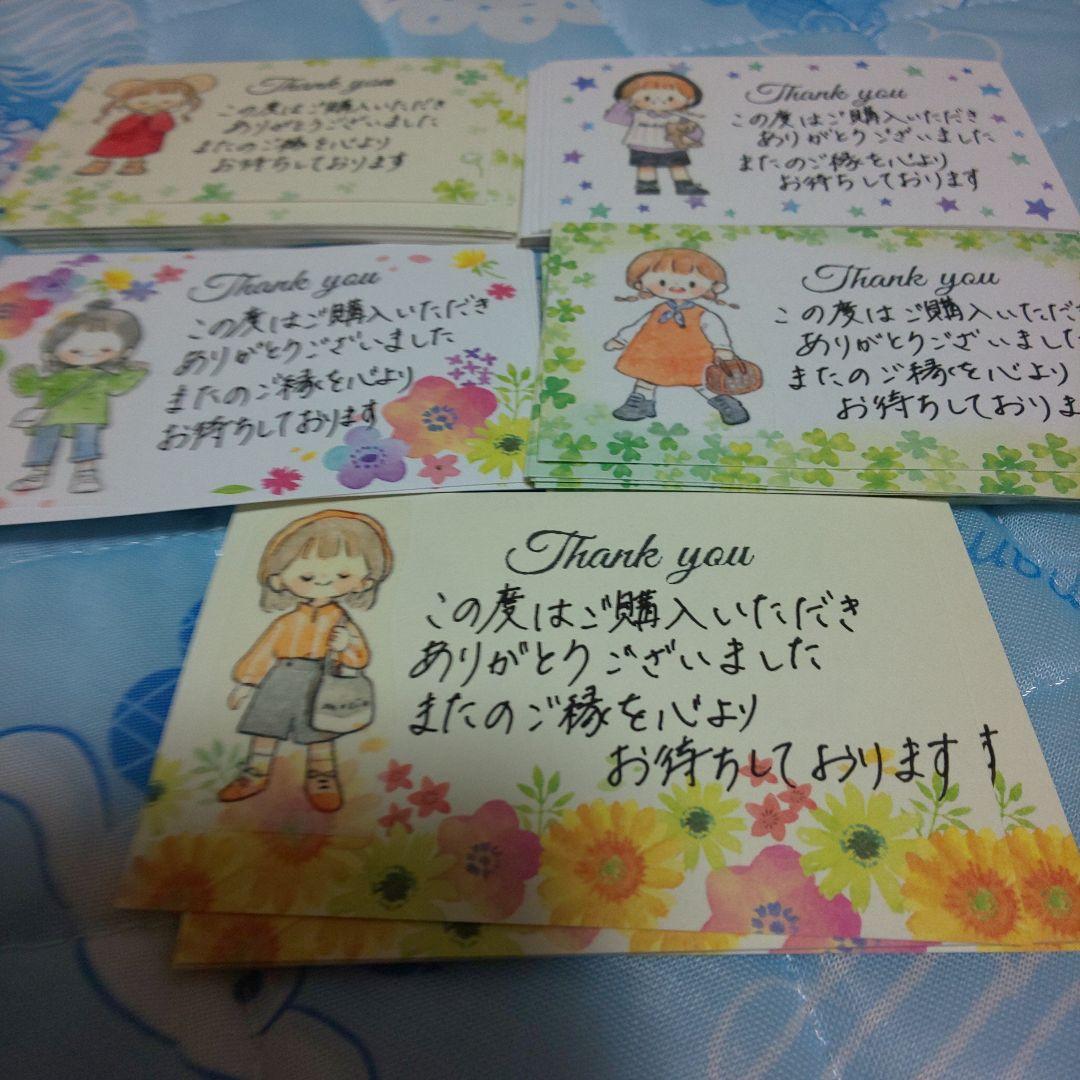 Thank you
この度はご購入いただき
ありがとうございました
またのご縁を心より
お待ちしております
Thank you
この度はご購入いただき
ありがとうございました
またのご縁を心より
お待ちしております
Thank you
この度はご購入いただき
ありがとうございました
またのご縁を心より
お待ちしております
Thank you
この度はご購入いただき
ありがとうございました
またのご縁を心より
お待ちしておりま
Thank you
この度はご購入いただき
ありがとうございました
またのご縁を心より
お待ちしております す